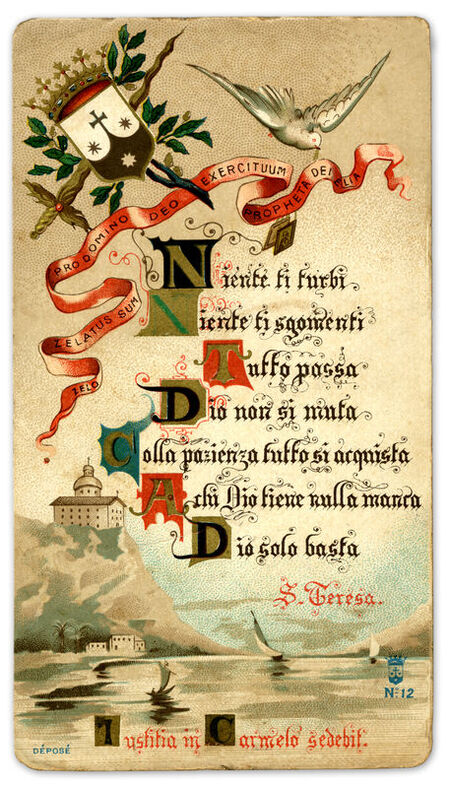 ZELO ZELATUS SUM PRO DOMINO DEO EXERCITUUM PROPHETA DEI ELIA
Niente ti turbi
Niente ti sgomenti
Tutto passa
Dio non si muta
Colla pazienza tutto si acquista
A chi Dio tiene nulla manca
Dio solo basta
S. Teresa.
No. 12
Iustitia in Carmelo sedebit.
DÉPOSÉ